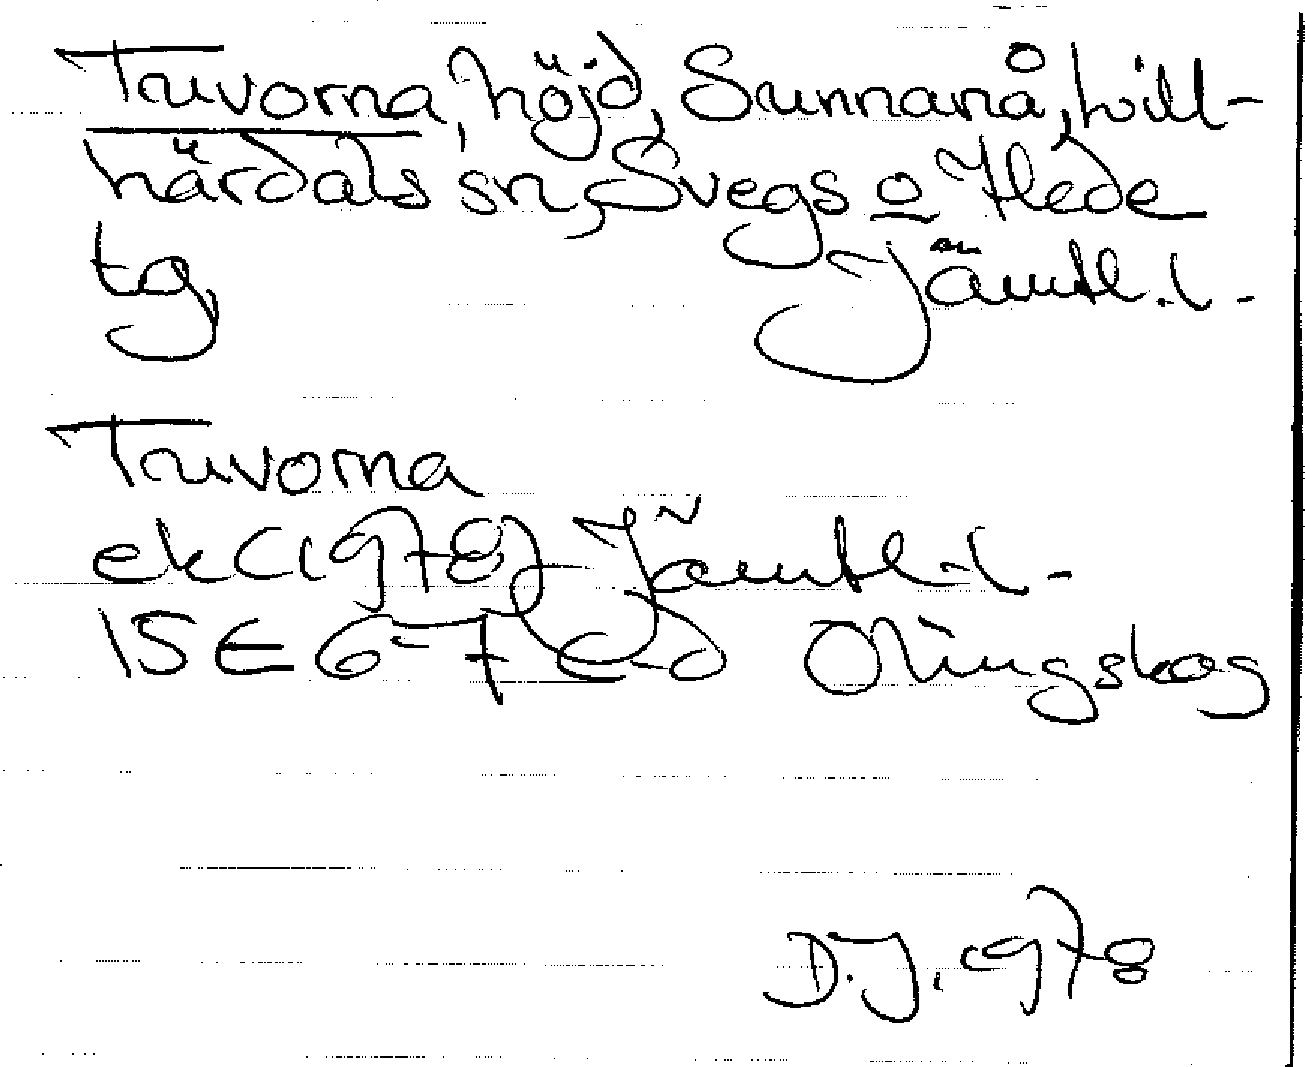 Truvorna, höjd, Sunnanå, Lill-
härdals sn, Svegs o Hede
tg, Jämtl. l.
Truvorna
ek (1978) Jämtl. l.
15E 6-7 c-d Olingskog
D.J. 1978